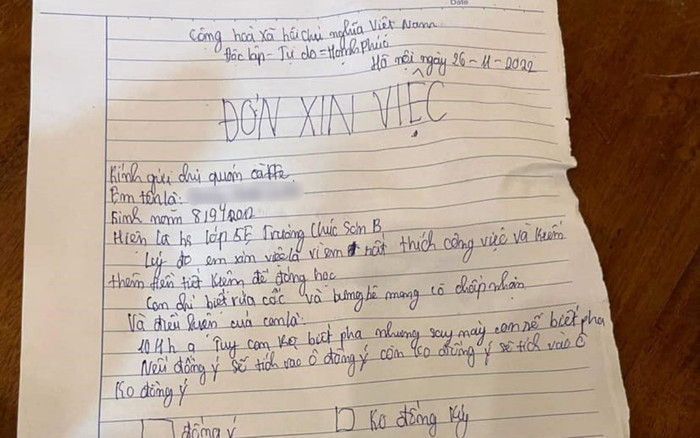 Date
Cộng hoà xã hội chủ nghĩa Việt Nam
Độc lập - Tự do = Hạnh Phúc
Hà nội ngày 26-11-2022
ĐƠN XIN VIỆC
Kính gửi chủ quán cà fe.
Em tên là:
Sinh năm 8/9/2012
Hiện là hs lớp 5E Trường Chúc Sơn B
Lý do em xin việc là vì em rất thích công việc và kiếm
thêm tiền tiết kiệm để đóng học
Con chỉ biết rửa cốc và bưng bê mong cô chấp nhận
Và điều kiện của con là:
10 1h ạ Tuy con ko biết pha nhưng sau này con sẽ biết pha
Nếu đồng ý sẽ tích vào ô đồng ý còn ko đồng ý sẽ tích vào ô
Ko đồng ý
đồng ý Ko đồng ý